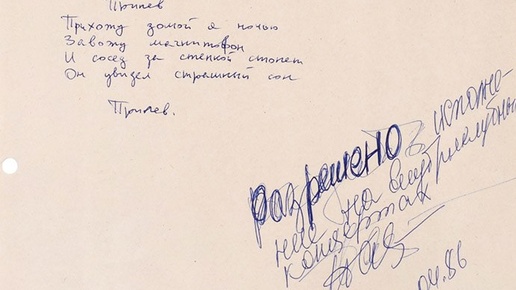 Припев
Прихожу домой я ночью
Завожу магнитофон
И сосед за стенкой стонет
Он увидел страшный сон
Припев.
разрешено исполне-
ние на внутриклубных
концертах
04.86